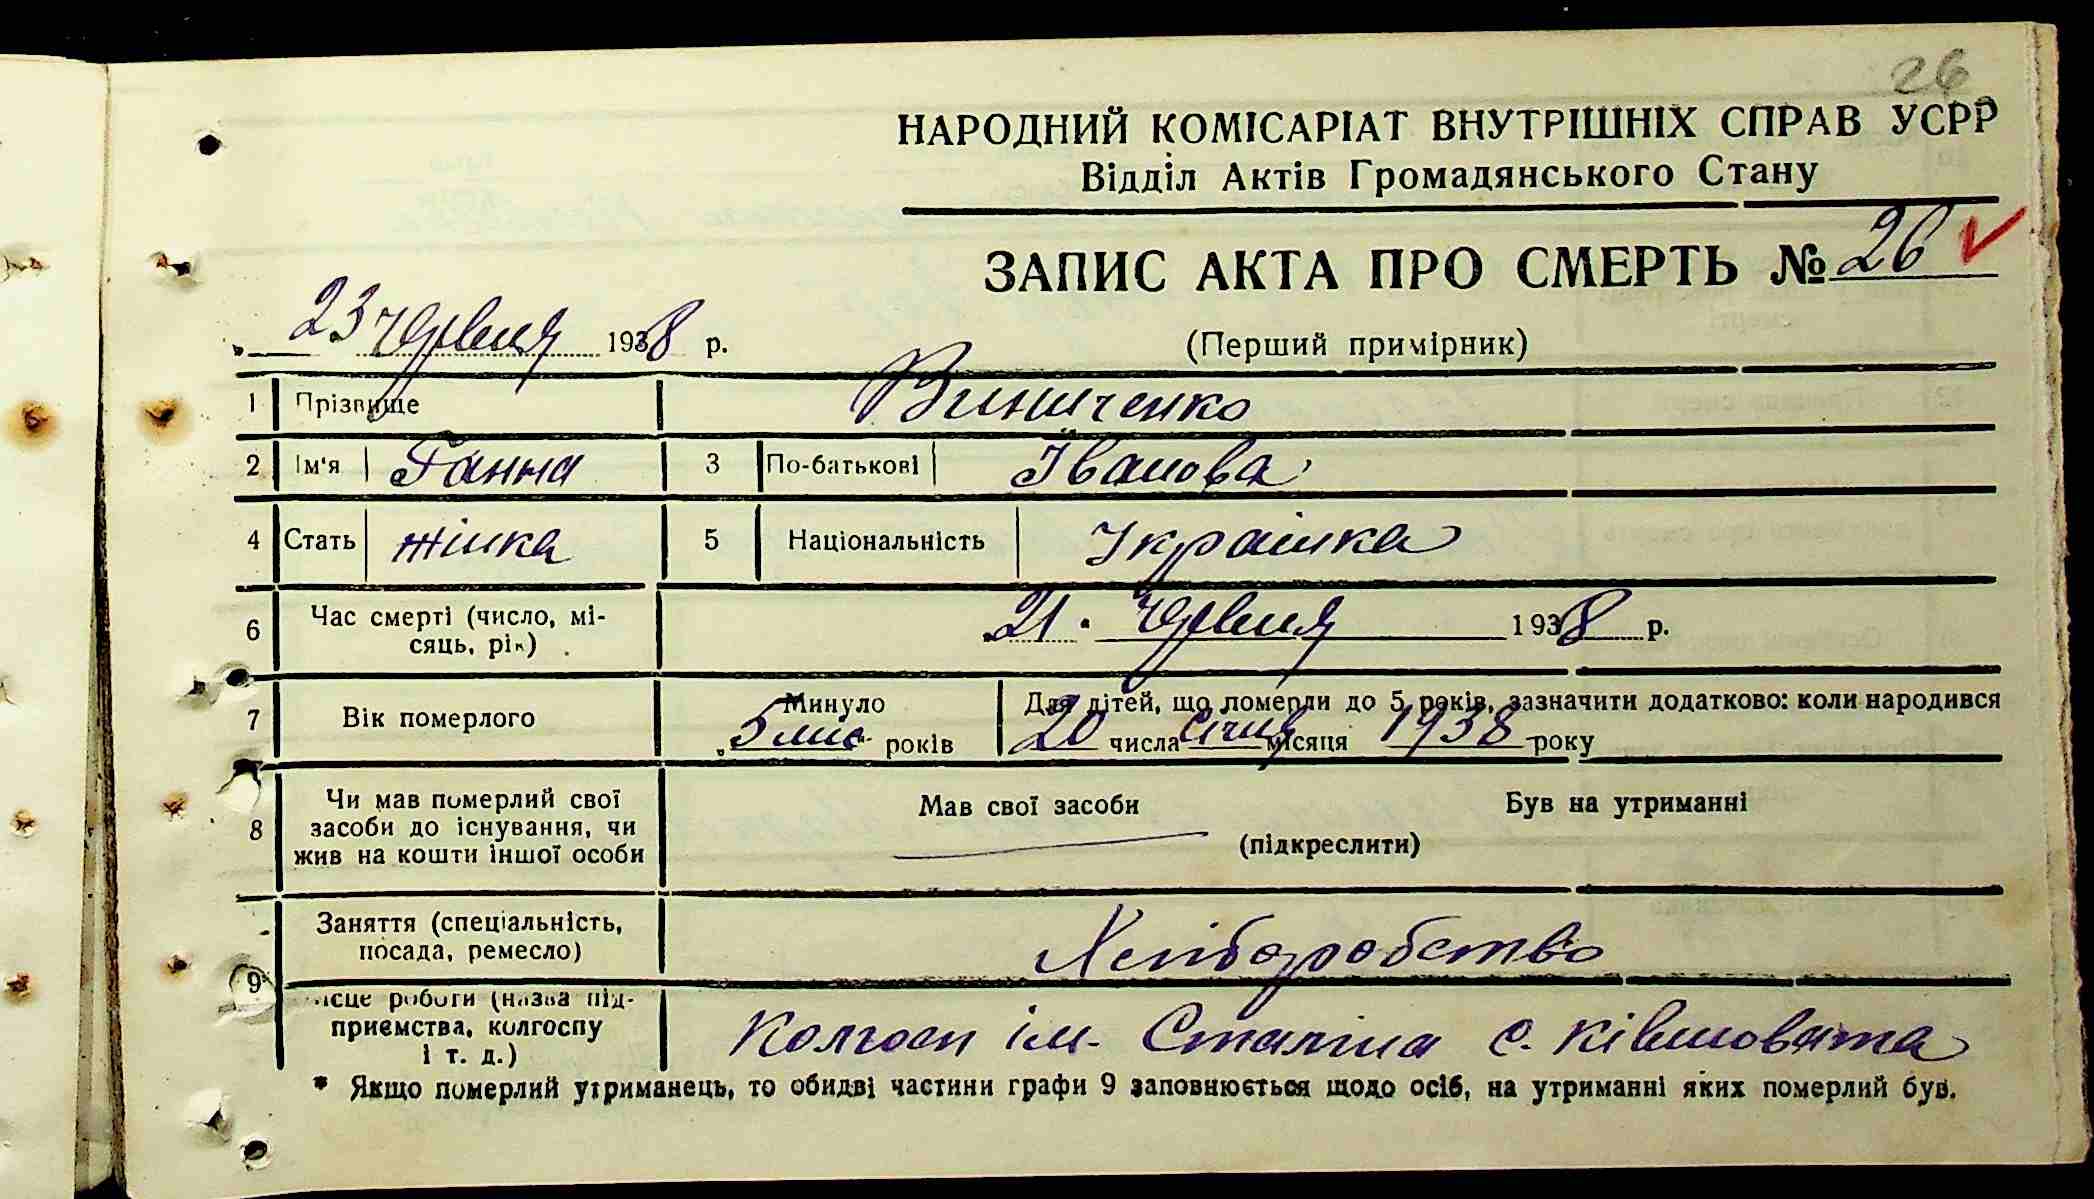 26
НАРОДНИЙ КОМІСАРІАТ ВНУТРІШНІХ СПРАВ УСРР
Відділ Актів Громадянського Стану
ЗАПИС АКТА ПРО СМЕРТЬ № 26
23 червня 1938 р.
(Перший примірник)
1 Прізвище Винниченко
2 Ім'я Ганна 3 По-батькові Іванова
4 Стать жінка 5 Національність Українка
6 Час смерті (число, мі-
сяць, рік) 21. червня 1938 р.
7 Вік померлого Минуло 5 міс. років Для дітей, що померли до 5 років, зазначити додатково: коли народився
20 числа січня місяця 1938 року
8 Чи мав померлий свої
засоби до існування, чи
жив на кошти іншої особи
Мав свої засоби Був на утриманні
(підкреслити)
9 Заняття (спеціальність,
посада, ремесло) Хліборобство
місце роботи (назва під-
приємства, колгоспу
і т. д.) Колгосп ім. Сталіна с. Ківшовата
* Якщо померлий утриманець, то обидві частини графи 9 заповнюється щодо осіб, на утриманні яких померлий був.